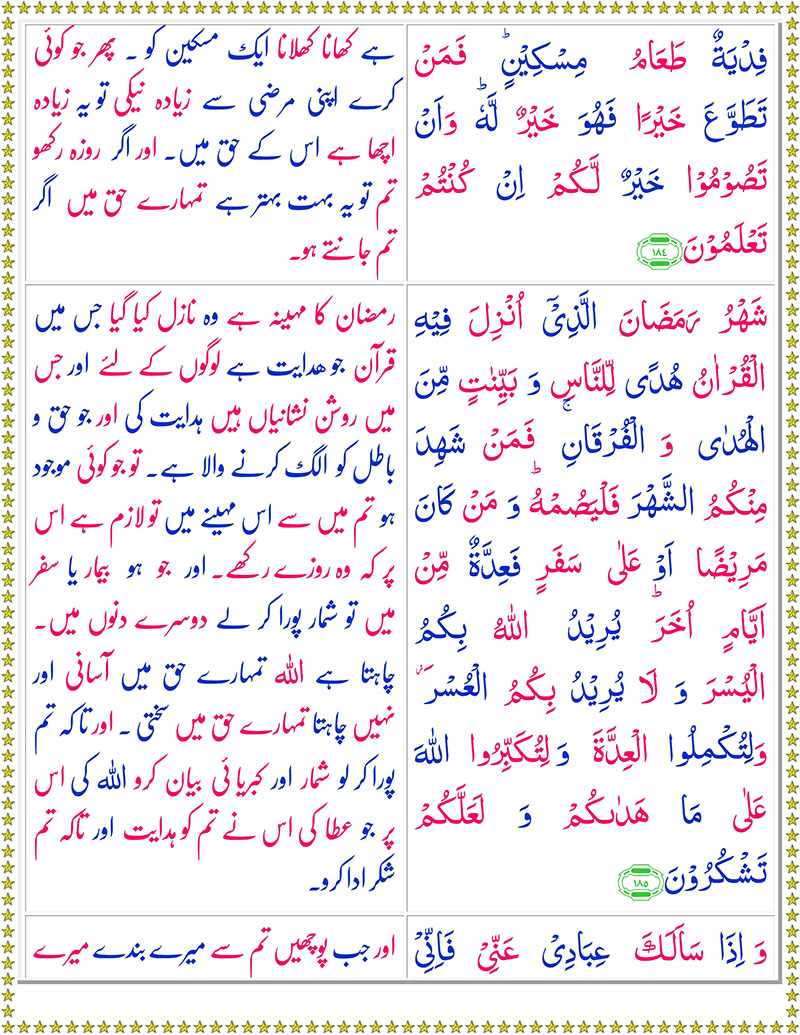 فِدْيَةٌ طَعَامُ مِسْكِيْنٍ ؕ فَمَنْ
تَطَوَّعَ خَيْرًا فَهُوَ خَيْرٌ لَّهٗ ؕ وَاَنْ
تَصُوْمُوْا خَيْرٌ لَّكُمْ اِنْ كُنْتُمْ
تَعْلَمُوْنَ ﴿١٨٤﴾
ہے کھانا کھلانا ایک مسکین کو ۔ پھر جو کوئی
کرے اپنی مرضی سے زیادہ نیکی تو یہ زیادہ
اچھا ہے اس کے حق میں۔ اور اگر روزہ رکھو
تم تو یہ بہت بہتر ہے تمہارے حق میں اگر
تم جانتے ہو۔
شَهْرُ رَمَضَانَ الَّذِيْۤ اُنْزِلَ فِيْهِ
الْقُرْاٰنُ هُدًى لِّلنَّاسِ وَ بَيِّنٰتٍ مِّنَ
الْهُدٰى وَ الْفُرْقَانِ ۚ فَمَنْ شَهِدَ
مِنْكُمُ الشَّهْرَ فَلْيَصُمْهُ ؕ وَ مَنْ كَانَ
مَرِيْضًا اَوْ عَلٰى سَفَرٍ فَعِدَّةٌ مِّنْ
اَيَّامٍ اُخَرَ ؕ يُرِيْدُ اللّٰهُ بِكُمُ
الْيُسْرَ وَ لَا يُرِيْدُ بِكُمُ الْعُسْرَ ؗ
وَلِتُكْمِلُوا الْعِدَّةَ وَ لِتُكَبِّرُوا اللّٰهَ
عَلٰى مَا هَدٰىكُمْ وَ لَعَلَّكُمْ
تَشْكُرُوْنَ ﴿١٨٥﴾
رمضان کا مہینہ ہے وہ نازل کیا گیا جس میں
قرآن جو ھدایت ہے لوگوں کے لئے اور جس
میں روشن نشانیاں ہیں ہدایت کی اور جو حق و
باطل کو الگ کرنے والا ہے۔ تو جو کوئی موجود
ہو تم میں سے اس مہینے میں تو لازم ہے اس
پر کہ وہ روزے رکھے۔ اور جو ہو بیمار یا سفر
میں تو شمار پورا کر لے دوسرے دنوں میں۔
چاہتا ہے اللہ تمہارے حق میں آسانی اور
نہیں چاہتا تمہارے حق میں سختی ۔ اور تاکہ تم
پورا کر لو شمار اور کبریائی بیان کرو اللہ کی اس
پر جو عطا کی اس نے تم کو ہدایت اور تاکہ تم
شکر ادا کرو۔
وَ اِذَا سَاَلَكَ عِبَادِيْ عَنِّيْ فَاِنِّيْ
اور جب پوچھیں تم سے میرے بندے میرے